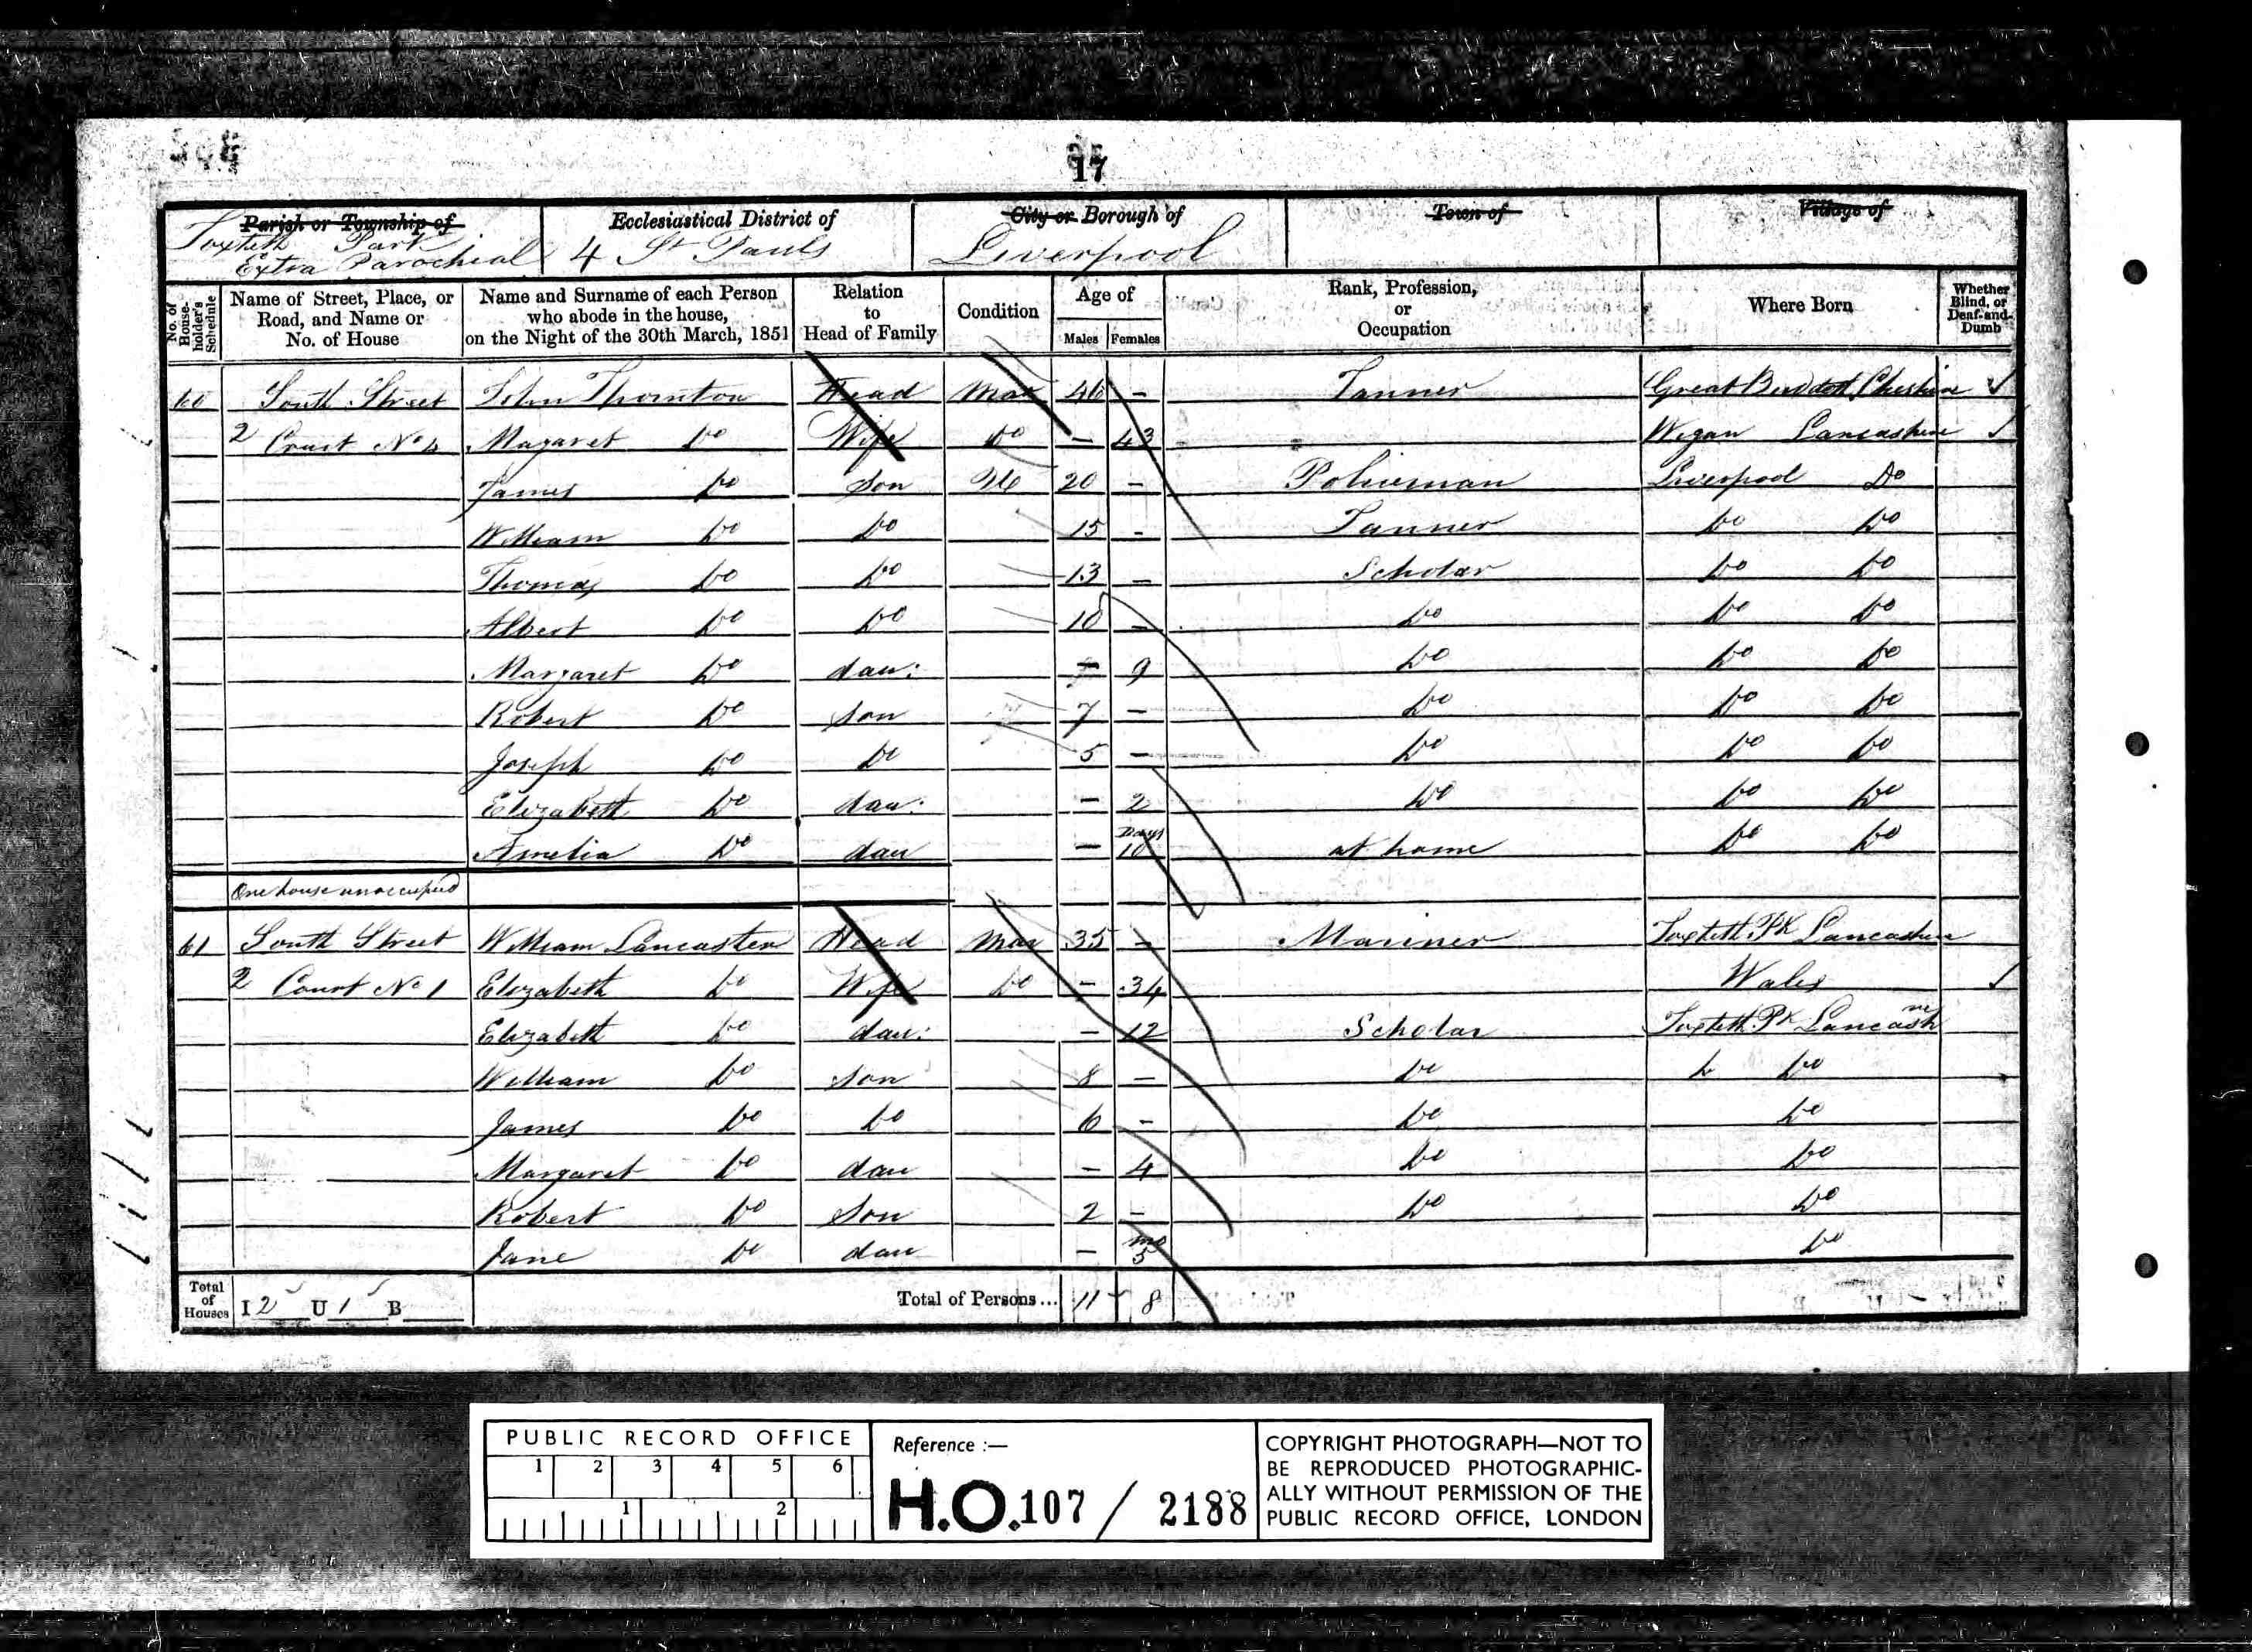 17
Parish or Township of | Ecclesiastical District of | City or Borough of | Town of | Village of
Toxteth Park
Extra Parochial | 4 St Pauls | Liverpool
No. of House-holder's Schedule | Name of Street, Place, or Road, and Name or No. of House | Name and Surname of each Person who abode in the house, on the Night of the 30th March, 1851 | Relation to Head of Family | Condition | Age of Males | Females | Rank, Profession, or Occupation | Where Born | Whether Blind, or Deaf-and-Dumb
60 | South Street | John Thornton | Head | Mar | 46 | – | Tanner | Great Buddott Cheshire
2 Court No 4 | Magaret Do | Wife | Do | – | 43 | Wigan Lancashire
James Do | Son | Un | 20 | – | Policeman | Liverpool Do
William Do | Do | 15 | – | Tanner | Do Do
Thomas Do | Do | 13 | – | Scholar | Do Do
Albert Do | Do | 10 | – | Do | Do Do
Margaret Do | dau: | – | 9 | Do | Do Do
Robert Do | Son | 7 | – | Do | Do Do
Joseph Do | Do | 5 | – | Do | Do Do
Elizabeth Do | dau: | – | 2 | Do | Do Do
Amelia Do | dau | – | Days 10 | at home | Do Do
One house unoccupied
61 | South Street | William Lancaster | Head | Mar | 35 | – | Mariner | Toxteth Pk Lancashire
2 Court No 1 | Elizabeth Do | Wife | Do | – | 34 | Wales
Elizabeth Do | dau: | – | 12 | Scholar | Toxteth Pk Lancash
William Do | Son | 8 | – | Do | Do
James Do | Do | 6 | – | Do | Do
Margaret Do | dau | – | 4 | Do | Do
Robert Do | Son | 2 | – | Do | Do
Jane Do | dau | – | mo 5 | Do
Total of Houses | I 2 U 1 B | Total of Persons... | 11 | 8
PUBLIC RECORD OFFICE
1 2 3 4 5 6
1 2
Reference :—
H.O. 107 / 2188
COPYRIGHT PHOTOGRAPH—NOT TO
BE REPRODUCED PHOTOGRAPHIC-
ALLY WITHOUT PERMISSION OF THE
PUBLIC RECORD OFFICE, LONDON